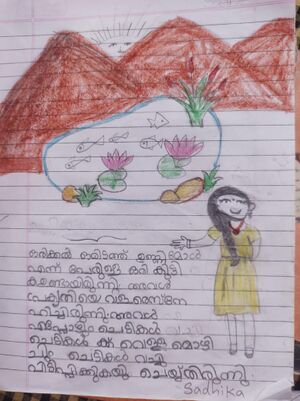 ഒരിക്കൽ ഒരിടത്ത് ഉണ്ണിമോൾ
എന്ന് പേരുള്ള ഒരു കുട്ടി
ഉണ്ടായിരുന്നു. അവൾ
പ്രകൃതിയെ
അവൾ
എപ്പോഴും ചെടികൾ
ചെടികൾ ക്ക് വെള്ള മൊഴി
ച്ചും ചെടികൾ വച്ചു
പിടിപ്പിക്കുകയും ചെയ്തിരുന്നു.
Sadhika